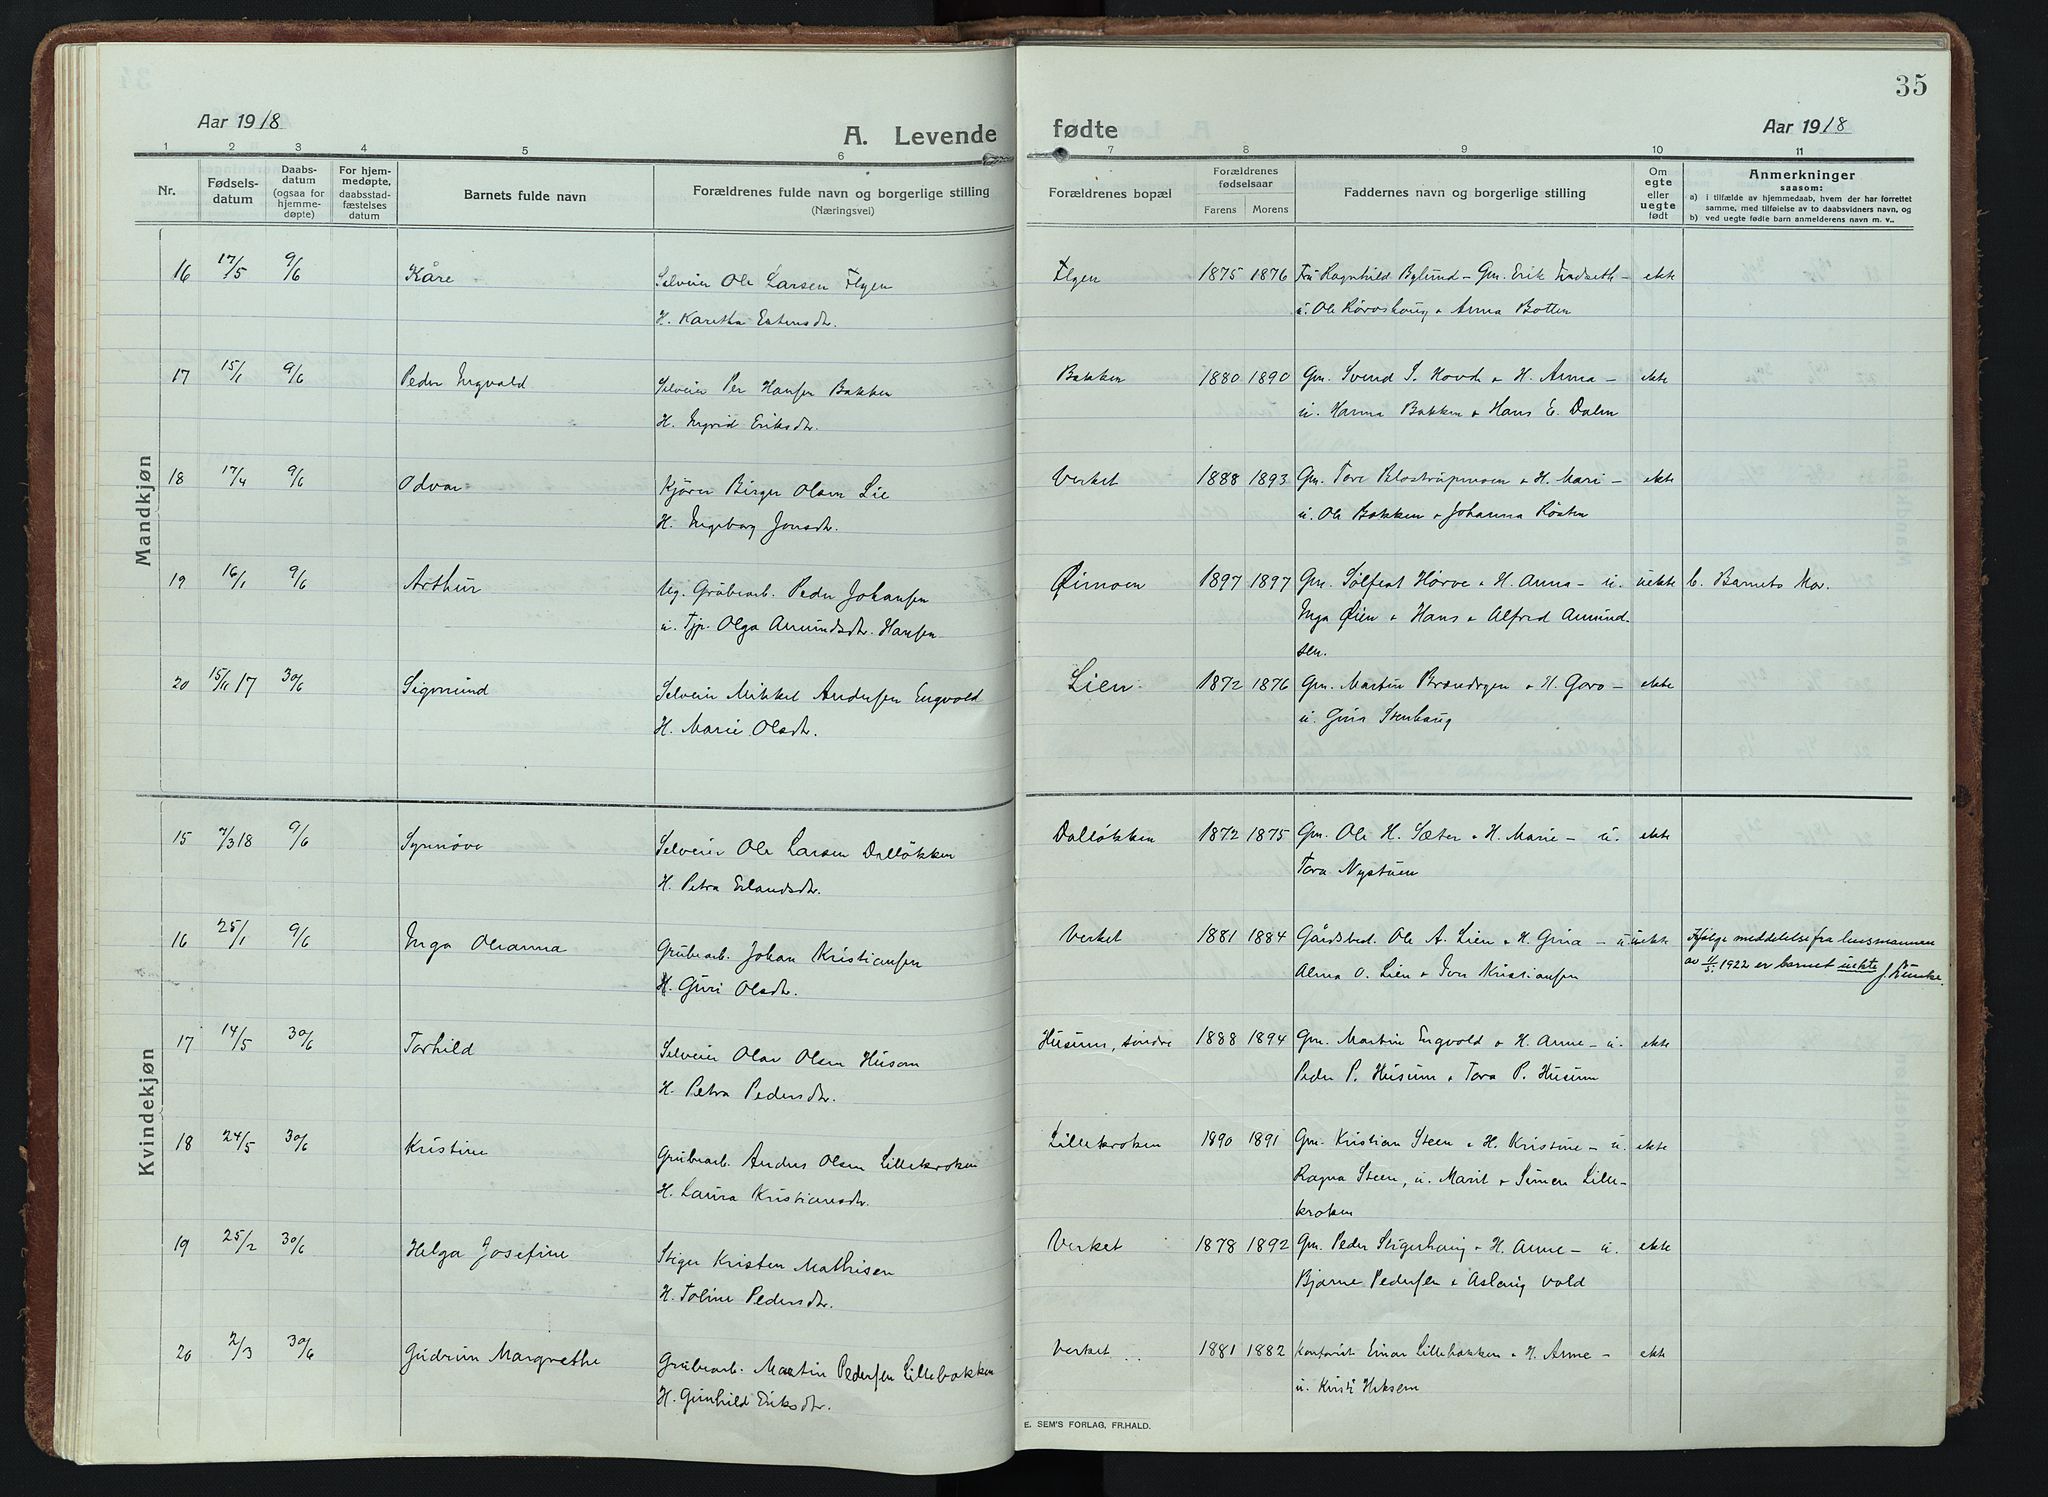 35
Aar 1918
A. Levende
fødte
Aar 1918
1 2 3 4 5 6 7 8 9 10 11
Nr.
Fødsels-
datum
Daabs-
datum
(ogsaa for
hjemme-
døpte)
For hjem-
medøpte,
daabsstad-
fæstelses
datum
Barnets fulde navn
Forældrenes fulde navn og borgerlige stilling
(Næringsvei)
Forældrenes bopæl
Forældrenes
fødselsaar
Farens Morens
Faddernes navn og borgerlige stilling
Om
egte
eller
uegte
født
Anmerkninger
saasom:
a) i tilfælde av hjemmedaab, hvem der har forrettet
samme, med tilføielse av to daabsvidners navn, og
b) ved uegte fødte barn anmelderens navn m. v..
Mandkjøn
16 17/5 9/6 Kåre Selveier Ole Larsen Flyen Flyen 1875 1876 Fru Ragnhild Bylund - Gm. Erik - ekte
H. Karetha u. Ole Røroshaug + Anna Botten
17 15/1 9/6 Peder Ingvald Selveier Per Hansen Bakken Bakken 1880 1890 Gm. Svend S. Hovde + H. Anna - ekte
H. Ingrid Eriksdtr. u. Hanna Bakken + Hans E. Dalen
18 17/4 9/6 Odvar Kjører Birger Olsen Lie Verket 1888 1893 Gm. Tore Blostrupmoen + H. Mari - ekte
H. Ingeborg Jonsdtr. u. Ole Bakken + Johanna Røsten
19 16/1 9/6 Arthur Ug. Grubearb. Peder Johansen Øimoen 1897 1897 Gm. Sølfest Hørve + H. Anna - u. uekte b. Barnets Mor.
u. Tjp. Olga Amundsdtr. Hansen Inga Øien + Hans + Alfred Amund-
sen.
20 15/11 17 30/6 Sigmund Selveier Mikkel Andersen Engvold Lien 1872 1876 Gm. Martin Brændryen + H. Goro - ekte
H. Marie Olsdtr. u. Gina Stenhaug
Kvindekjøn
15 7/3 18 9/6 Synnøve Selveier Ole Larsen Dalløkken Dalløkken 1872 1875 Gm. Ole H. Sæter + H. Marie - u. ekte
H. Petra Erlandsdtr. Tora Nystuen
16 25/1 9/6 Inga Oleanna Grubearb. Johan Kristiansen Verket 1881 1884 Gårdsbed. Ole A. Lien + H. Gina - u. uekte Ifølge meddelelse fra lensmannen
H. Guri Olsdtr. Alma O. Lien + Iver Kristiansen av 11/5. 1922 er barnet uekte
17 14/5 30/6 Torhild Selveier Olav Olsen Husom Husum, søndre 1888 1894 Gm. Martin Engvold + H. Anne - u. ekte
H. Petra Pedersdtr. Peder P. Husum + Tora P. Husum
18 24/5 30/6 Kristine Grubearb. Anders Olsen Lillekroken Lillekroken 1890 1891 Gm. Kristian Steen + H. Kristine - u. ekte
H. Laura Kristiansdtr. Ragna Steen, u. Marit + Simen Lille-
kroken
19 25/2 30/6 Helga Josefine Stiger Kristen Mathisen Verket 1878 1892 Gm. Peder Stigerhaug + H. Anne - u. ekte
H. Toline Pedersdtr. Bjarne Pedersen + Aslaug Vold
20 2/3 30/6 Gudrun Margrethe Grubearb. Martin Pedersen Lillebakken Verket 1881 1882 Kontorist Einar Lillebakken + H. Anne - ekte
H. Gunhild Eriksdtr. u. Kristi
E. SEM'S FORLAG, FR.HALD.